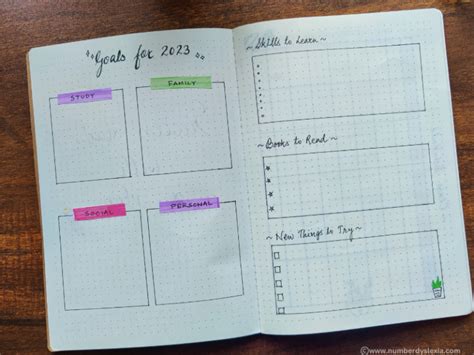 Goals for 2023
STUDY
FAMILY
SOCIAL
PERSONAL
~ Skills to Learn ~
~ Books to Read ~
~ New Things to Try ~
©www.numberdyslexia.com